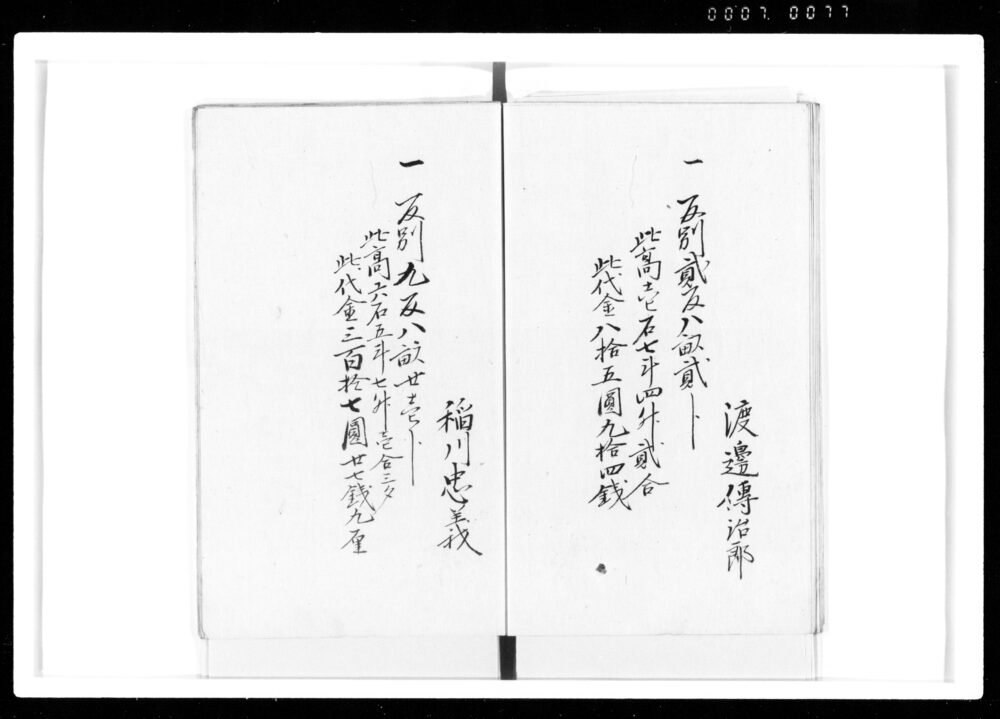 0007 0077
渡邊傳治郎
一 反別貳反八畝貳卜
此高壱石七斗四升貳合
此代金八拾五圓九拾四銭
稲川忠義
一 反別九反八畝廿壱卜
此高六石五斗七升壱合三夕
此代金三百拾七圓廿七銭九厘